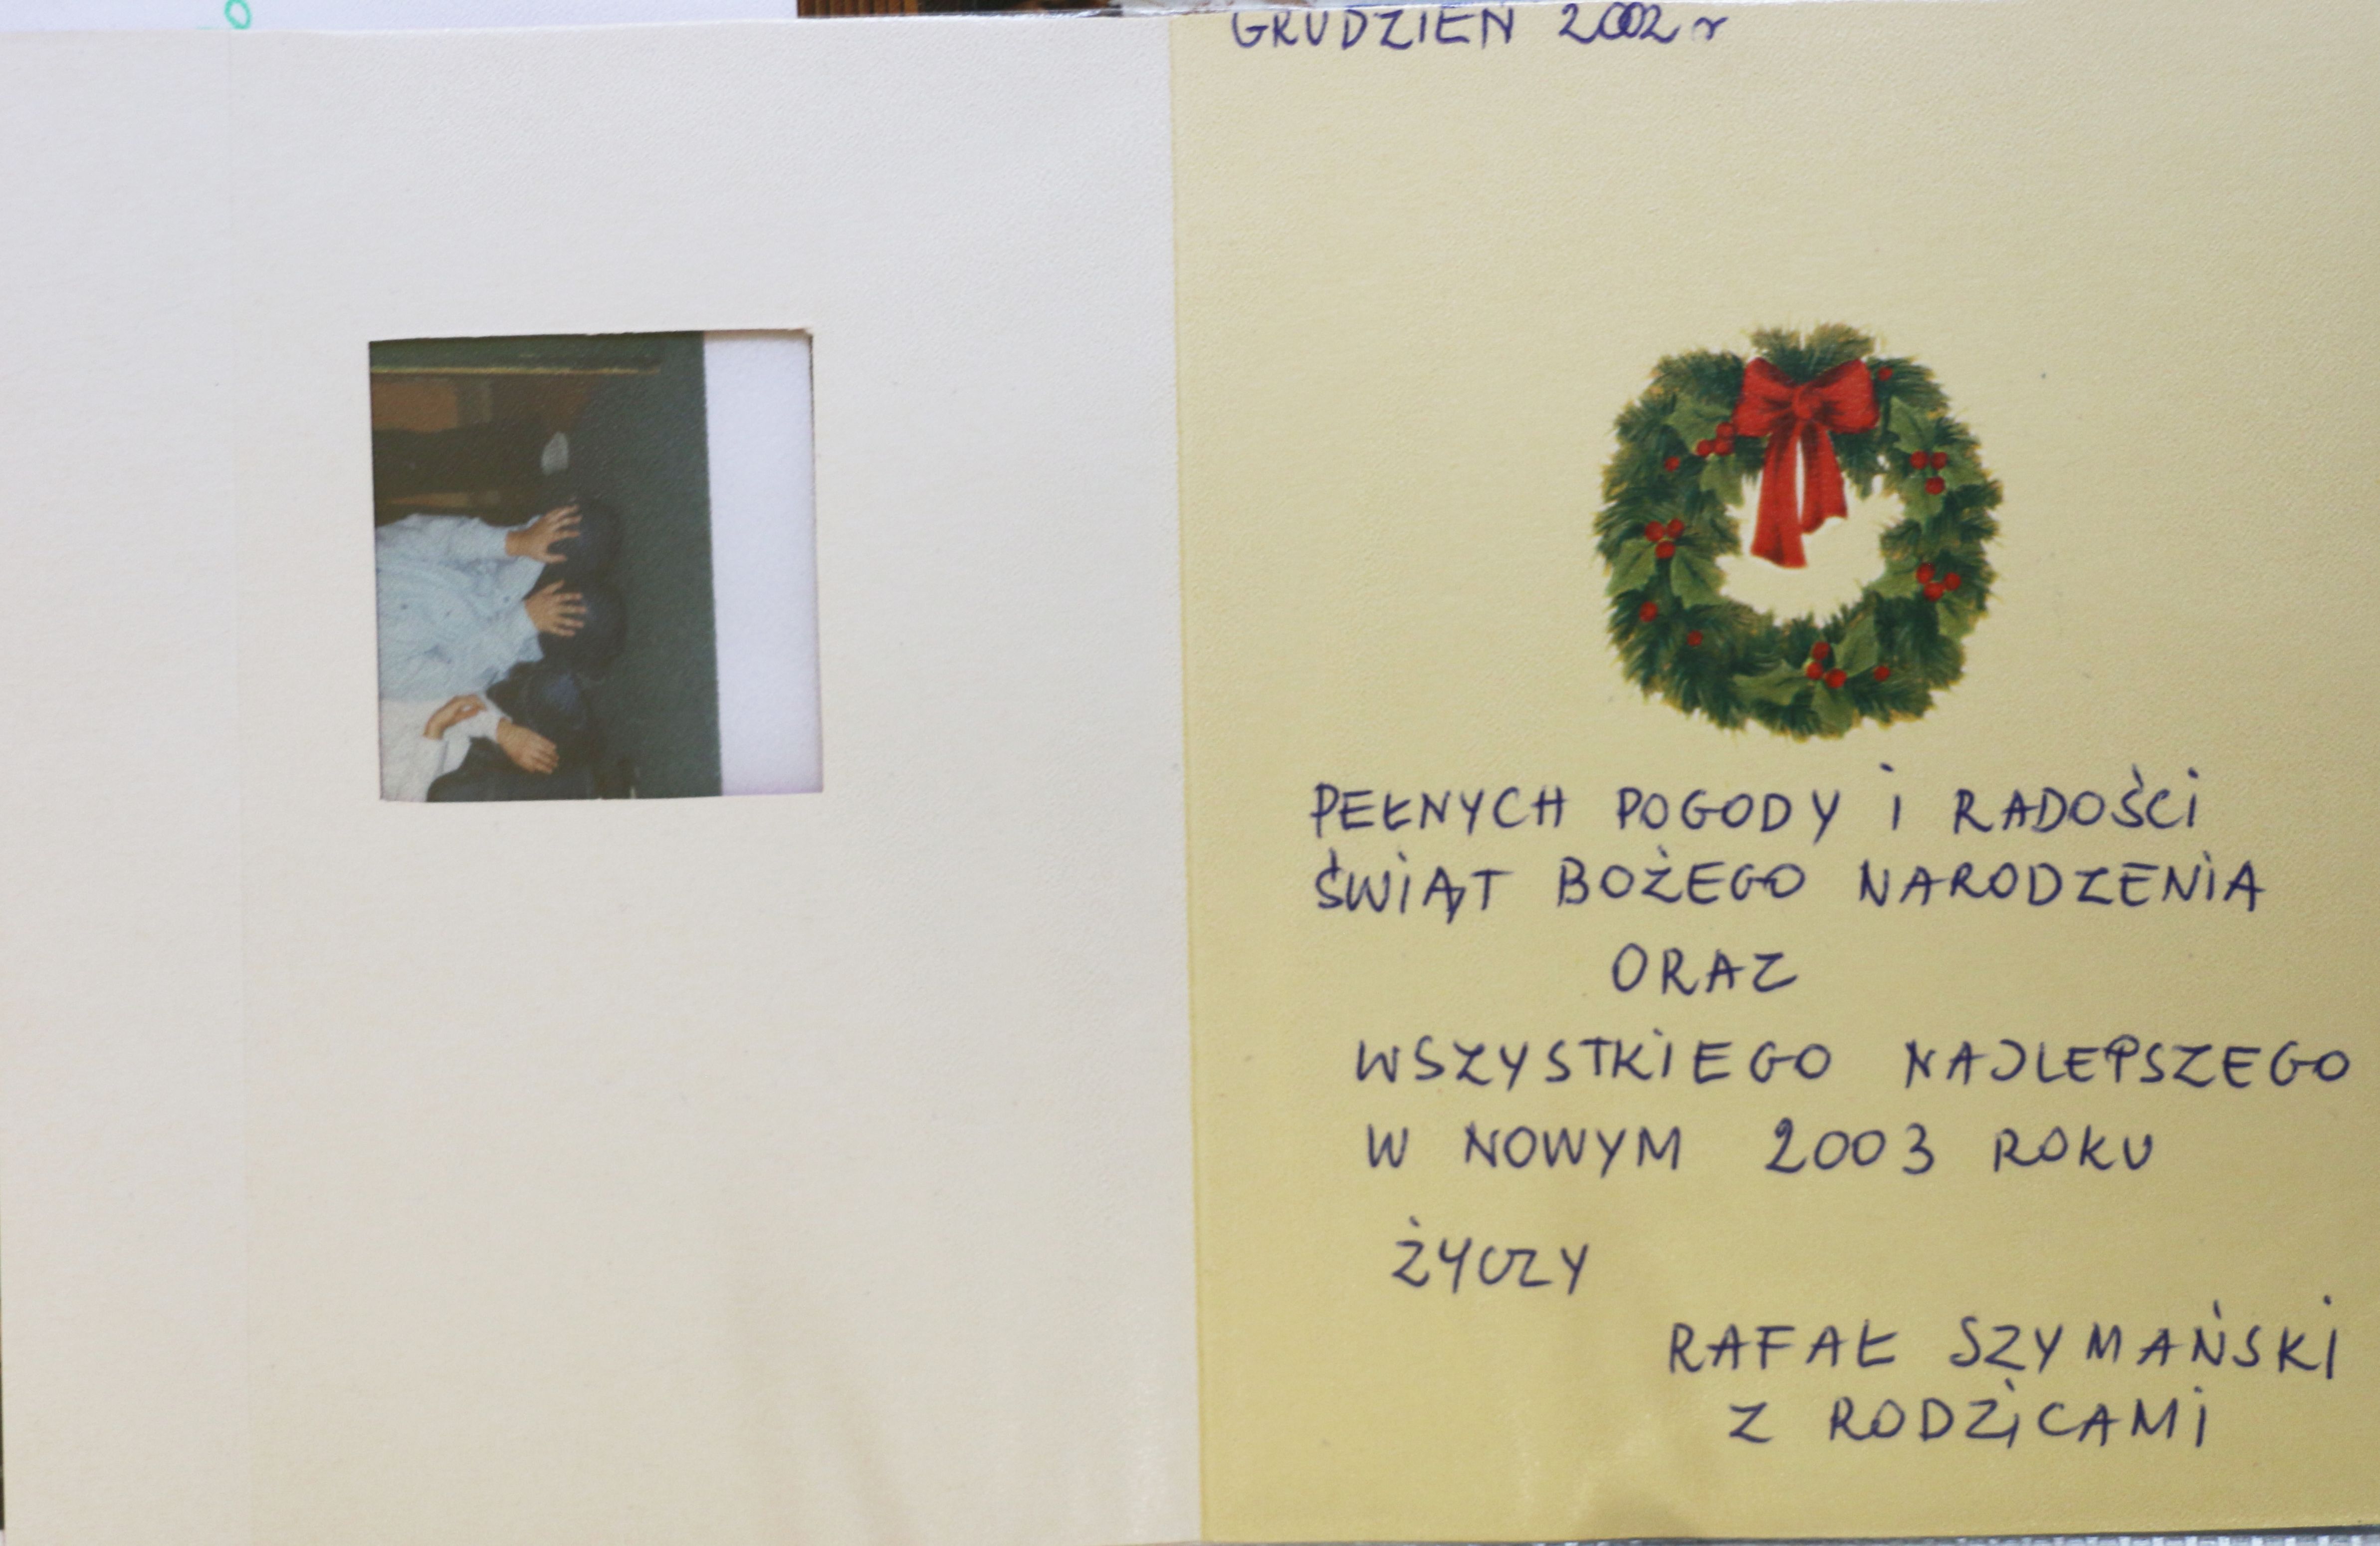 GRUDZIEŃ 2002 r
PEŁNYCH POGODY i RADOŚCi
ŚWiĄT BOŻEGO NARODZENiA
ORAZ
WSZYSTKiEGO NAJLEPSZEGO
W NOWYM 2003 ROKU
ŻYCZY
RAFAŁ SZYMAŃSKi
Z RODZiCAMi